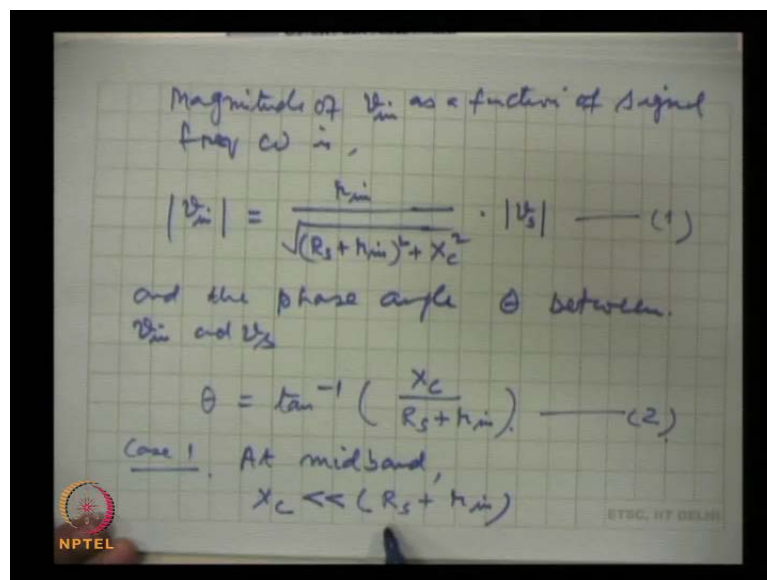 Magnitude of v_in as a function of signal
freq ω is,
|v_in| = r_in / √((R_s + r_in)² + X_c²) · |v_s| —— (1)
and the phase angle θ between
v_in and v_s
θ = tan⁻¹ ( X_c / R_s + r_in ) —— (2)
Case 1. At midband,
X_c << (R_s + r_in)
ETSC, IIT DELHI
NPTEL